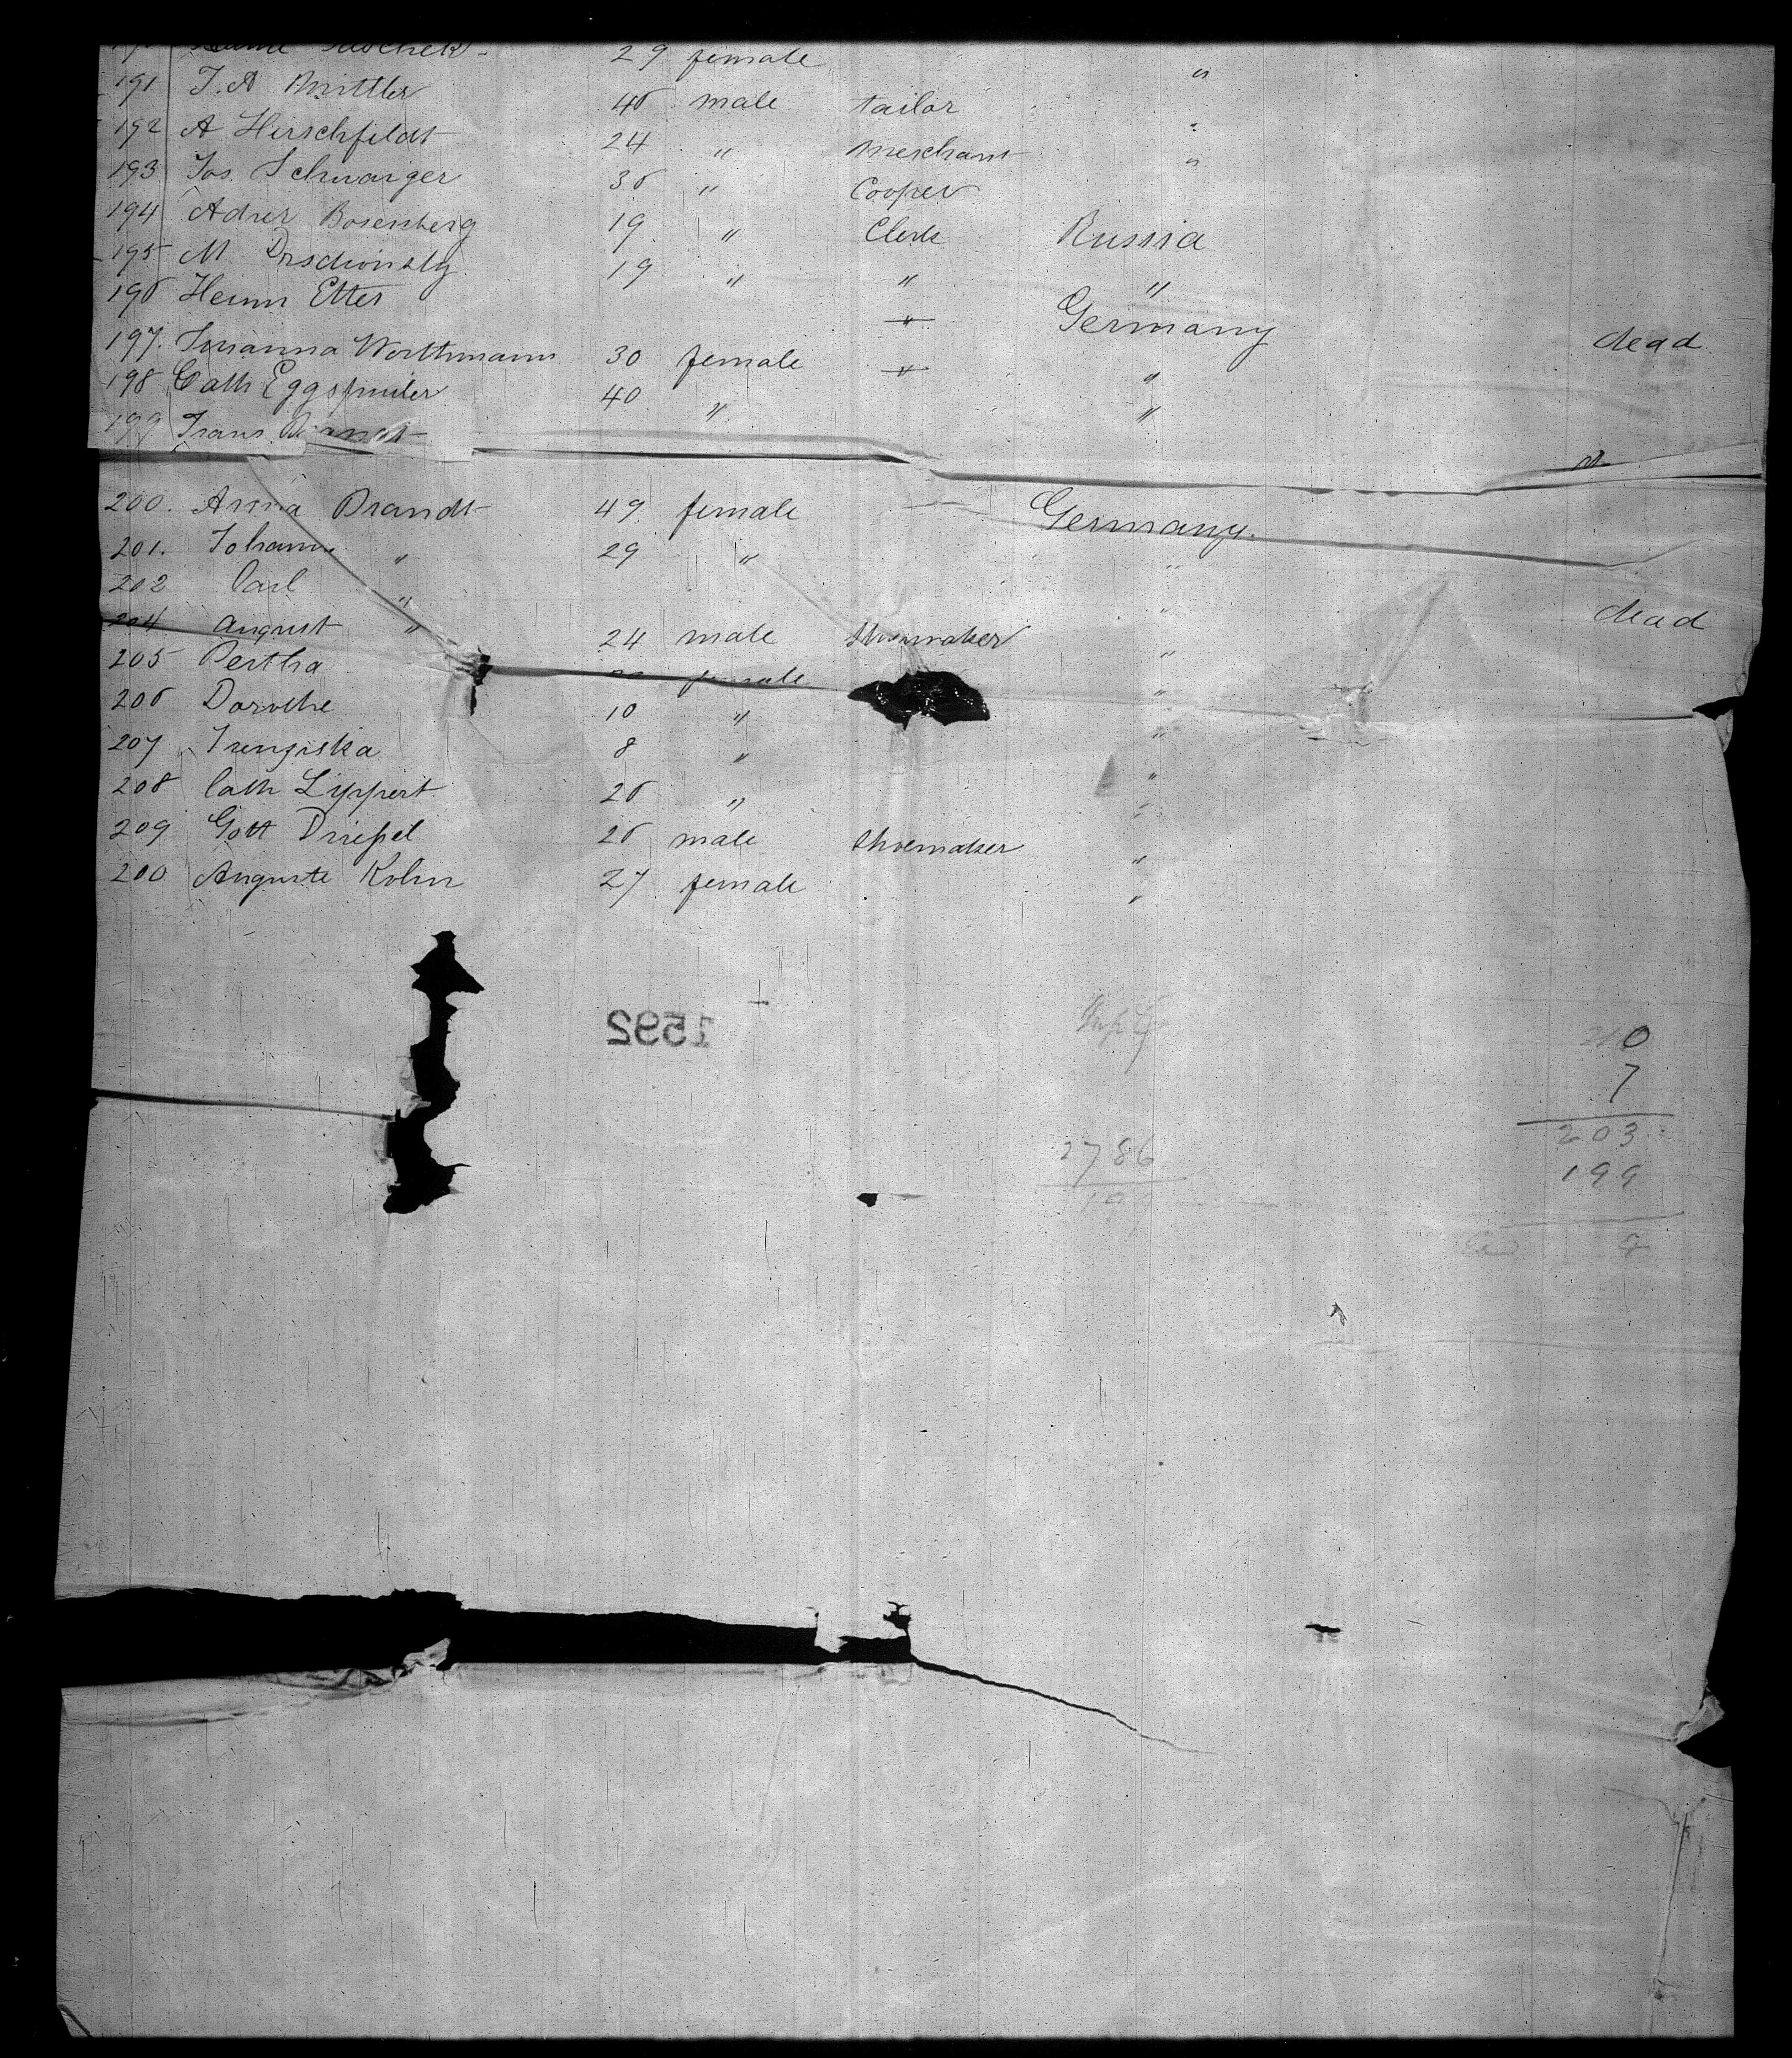 29 female "
191 J. A Mittler 46 male tailor "
192 A Hirschfeldt 24 " Merchant "
193 Jos Schwaiger 36 " Cooper
194 Adner Bosenberg 19 " Clerk Russia
195 M 19 " " "
196 Herm Etter " Germany dead
197. Susanna Worthmann 30 female " "
198 Cath 40 " "
199 Frans
200. Anna Brandt 49 female Germany.
201. Johann " 29 " "
202 Carl " " dead
204 August " 24 male Shoemaker "
205 Bertha female "
206 Dorothe 10 " "
207 Frenziska 8 " "
208 Cath Lippert 26 " "
209 Gott 26 male Shoemaker "
200 Auguste Kohn 27 female "
1592
210
7
203
2786
199
199
4